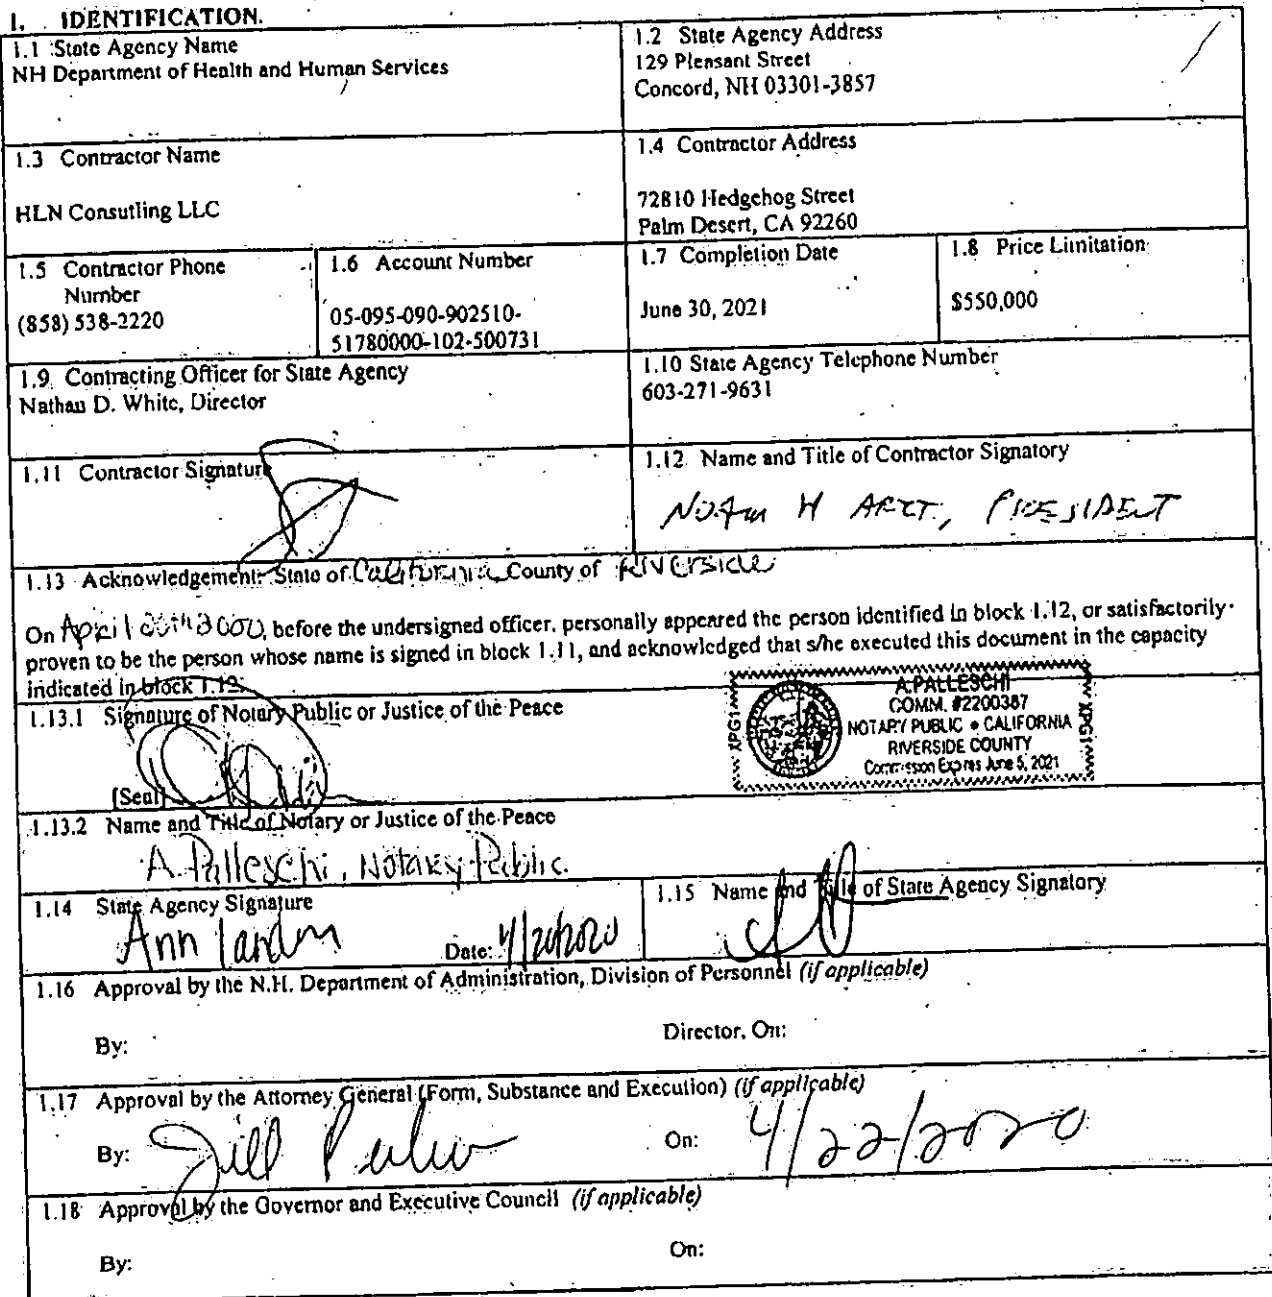 1. IDENTIFICATION.
1.1 State Agency Name
NH Department of Health and Human Services
1.2 State Agency Address
129 Pleasant Street
Concord, NH 03301-3857
1.3 Contractor Name
HLN Consutling LLC
1.4 Contractor Address
72810 Hedgehog Street
Palm Desert, CA 92260
1.5 Contractor Phone
Number
(858) 538-2220
1.6 Account Number
05-095-090-902510-
51780000-102-500731
1.7 Completion Date
June 30, 2021
1.8 Price Limitation
$550,000
1.9 Contracting Officer for State Agency
Nathan D. White, Director
1.10 State Agency Telephone Number
603-271-9631
1.11 Contractor Signature
1.12 Name and Title of Contractor Signatory
NOAM H ARZT, PRESIDENT
1.13 Acknowledgement: State of California, County of Riverside
On April before the undersigned officer, personally appeared the person identified in block 1.12, or satisfactorily
proven to be the person whose name is signed in block 1.11, and acknowledged that s/he executed this document in the capacity
indicated in block 1.12.
1.13.1 Signature of Notary Public or Justice of the Peace
[Seal]
A. PALLESCHI
COMM. #2200387
NOTARY PUBLIC • CALIFORNIA
RIVERSIDE COUNTY
Commission Expires June 5, 2021
XPG1
XPG1
1.13.2 Name and Title of Notary or Justice of the Peace
A. Palleschi, Notary Public.
1.14 State Agency Signature
Ann Landry
Date: 4/20/2020
1.15 Name and Title of State Agency Signatory
1.16 Approval by the N.H. Department of Administration, Division of Personnel (if applicable)
By:
Director, On:
1.17 Approval by the Attorney General (Form, Substance and Execution) (if applicable)
By: Jill
On: 4/22/2020
1.18 Approval by the Governor and Executive Council (if applicable)
By:
On: